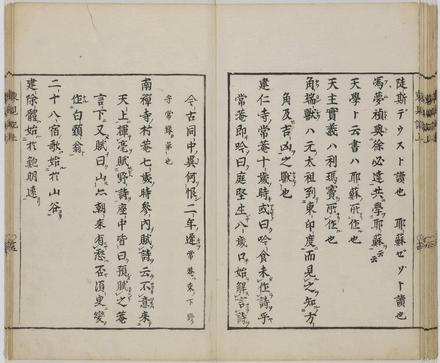 陡斯テウスト讀也 耶蘇ゼソト讀也
馮夢禎與徐必達共學耶蘇云
天學ト云書ハ耶蘇所作也
天主實義ハ利瑪竇所作也
角端獸ハ元太祖到東印度而見之知方
角及吉凶之獸也
建仁寺常菴十歲時或曰吟食未作詩乎
常菴即吟曰庭堅生八歲口始解言詩
今古同中異何恨二年遲
南禪寺村菴七歲時參內賦詩云不意來
天上揮毫賦野詩座中皆曰預賦之菴
言下又賦曰山六朝來有愁否須臾變
作白頭翁
二十八宿歌始於山谷
建除體始於鮑明遠